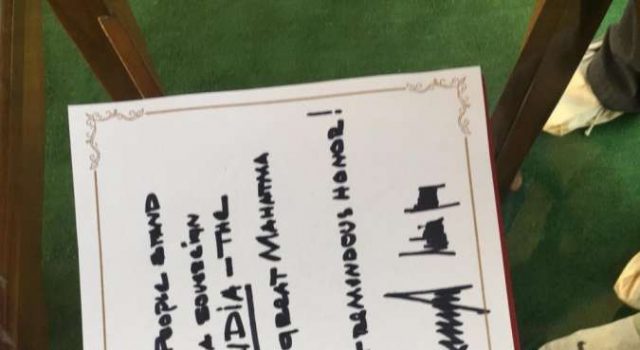 PEOPLE STAND
SOVEREIGN
NDIA – THE
GREAT MAHATMA
TREMENDOUS HONOR!